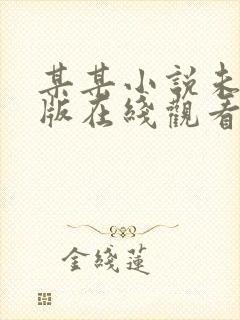 某某小説未
版在綫觀看
金綫蓮